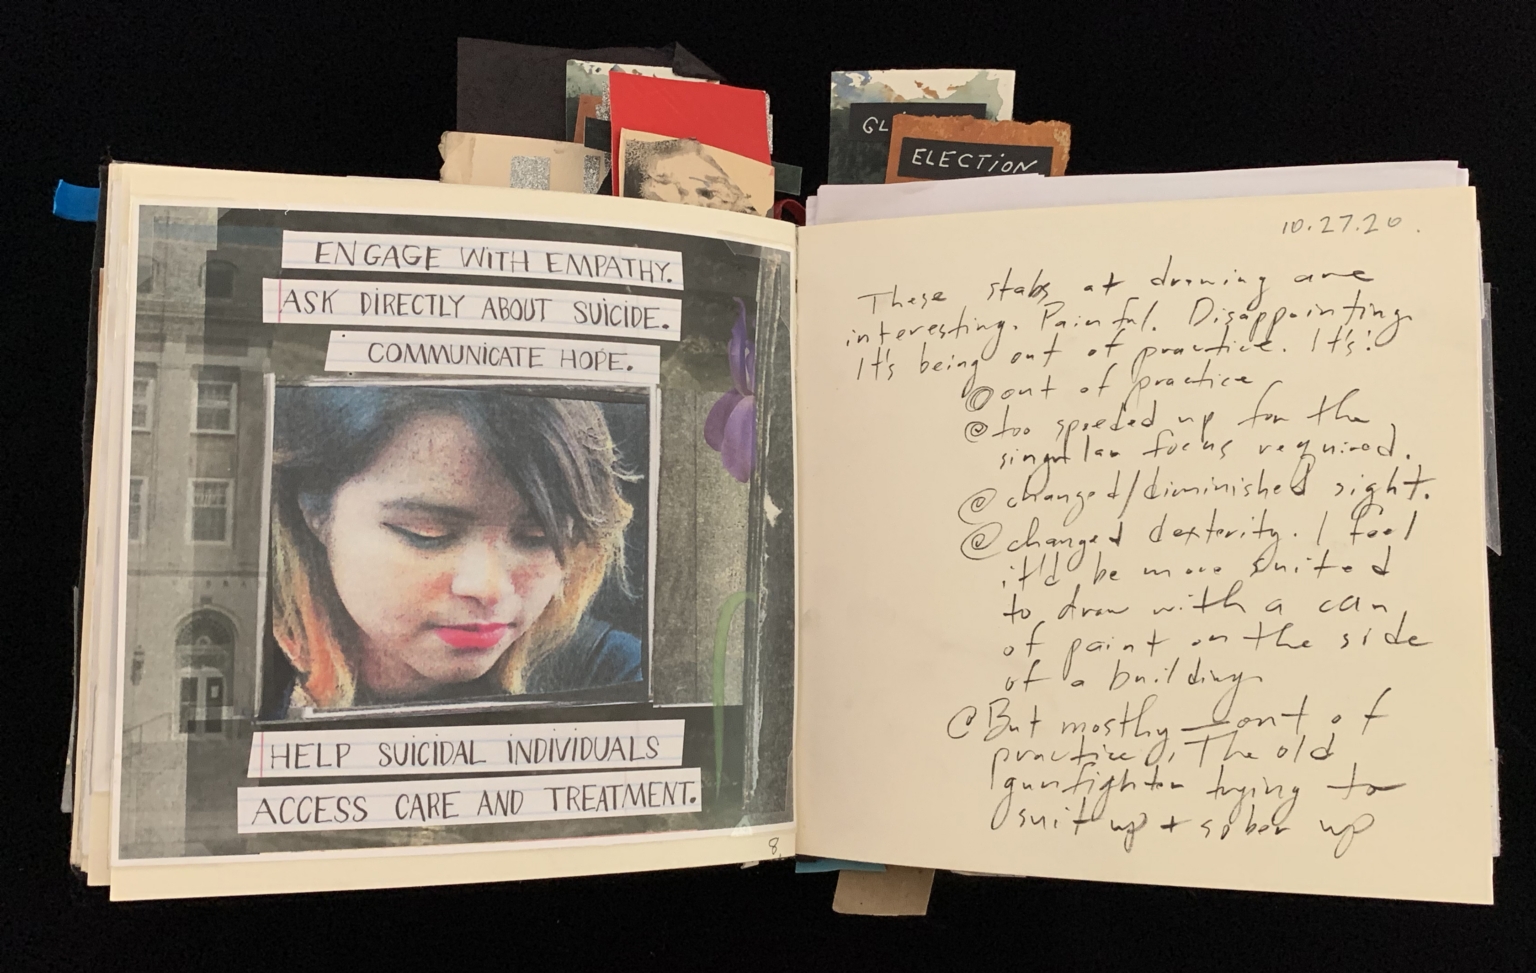 GL
ELECTION
ENGAGE WITH EMPATHY.
ASK DIRECTLY ABOUT SUICIDE.
COMMUNICATE HOPE.
HELP SUICIDAL INDIVIDUALS
ACCESS CARE AND TREATMENT.
8
10.27.20.
These stabs at drawing are
interesting. Painful. Disappointing.
It's being out of practice. It's:
@ out of practice
@ too speeded up for the
singular focus required.
@ changed/diminished sight.
@ changed dexterity. I feel
it'd be more suited
to draw with a can
of paint on the side
of a building.
@ But mostly — out of
practice. The old
gunfighter trying to
suit up + sober up